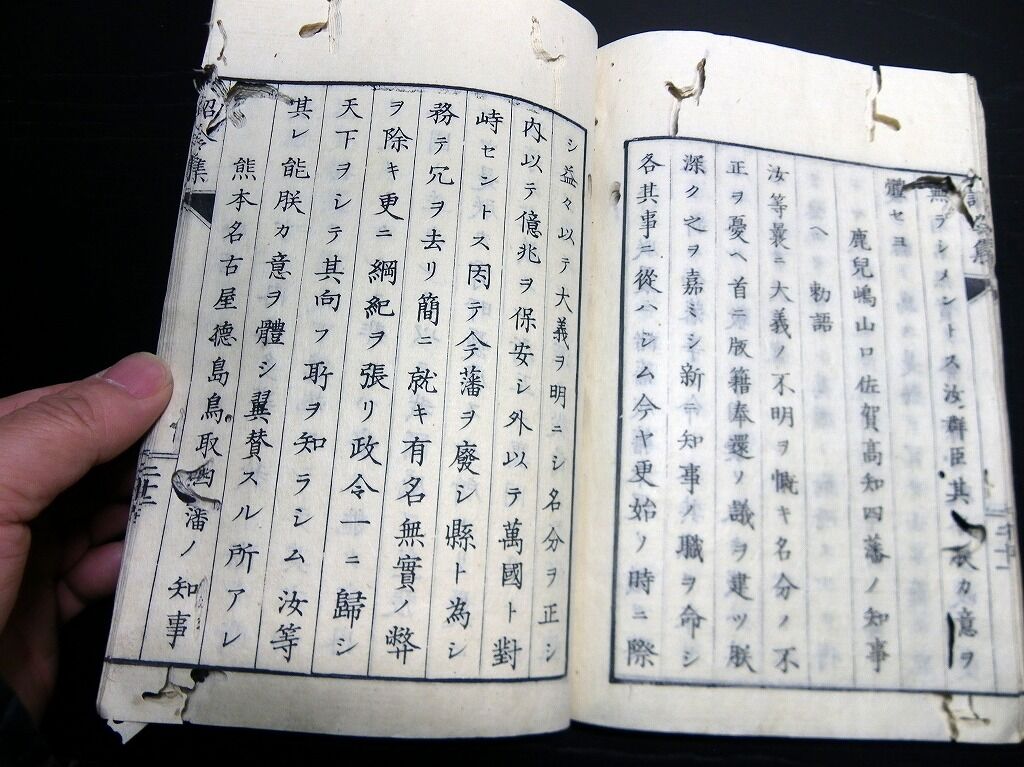 無ラシメントス汝群臣其レ朕カ意ヲ
體セヨ
鹿兒嶋山口佐賀高知四藩ノ知事
ヘ勅語
汝等曩ニ大義ノ不明ヲ慨キ名分ノ不
正ヲ憂ヘ首ニ版籍奉還ノ議ヲ建ツ朕
深ク之ヲ嘉ミシ新ニ知事ノ職ヲ命シ
各其事ニ從ハシム今ヤ更始ノ時ニ際
シ益々以テ大義ヲ明ニシ名分ヲ正シ
内以テ億兆ヲ保安シ外以テ萬國ト對
峙セントス因テ今藩ヲ廢シ縣ト為シ
務テ冗ヲ去リ簡ニ就キ有名無實ノ弊
ヲ除キ更ニ綱紀ヲ張リ政令一ニ歸シ
天下ヲシテ其向フ所ヲ知ラシム汝等
其レ能朕カ意ヲ體シ翼賛スル所アレ
熊本名古屋德島鳥取四藩ノ知事
集